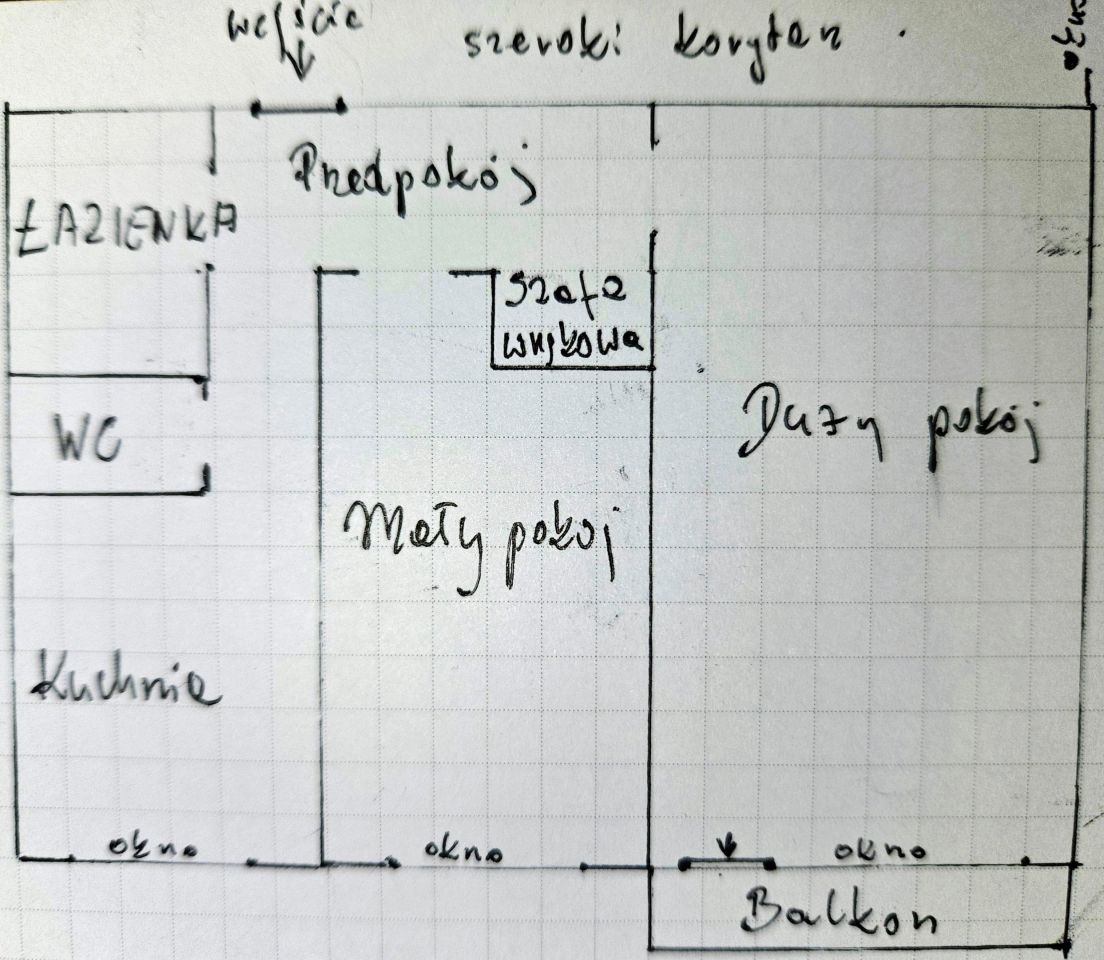 wejście
szeroki korytarz.
okno
Przedpokój
ŁAZIENKA
Szafa
wnękowa
WC
Duży pokój
Mały pokoj
Kuchnia
okno
okno
okno
Balkon